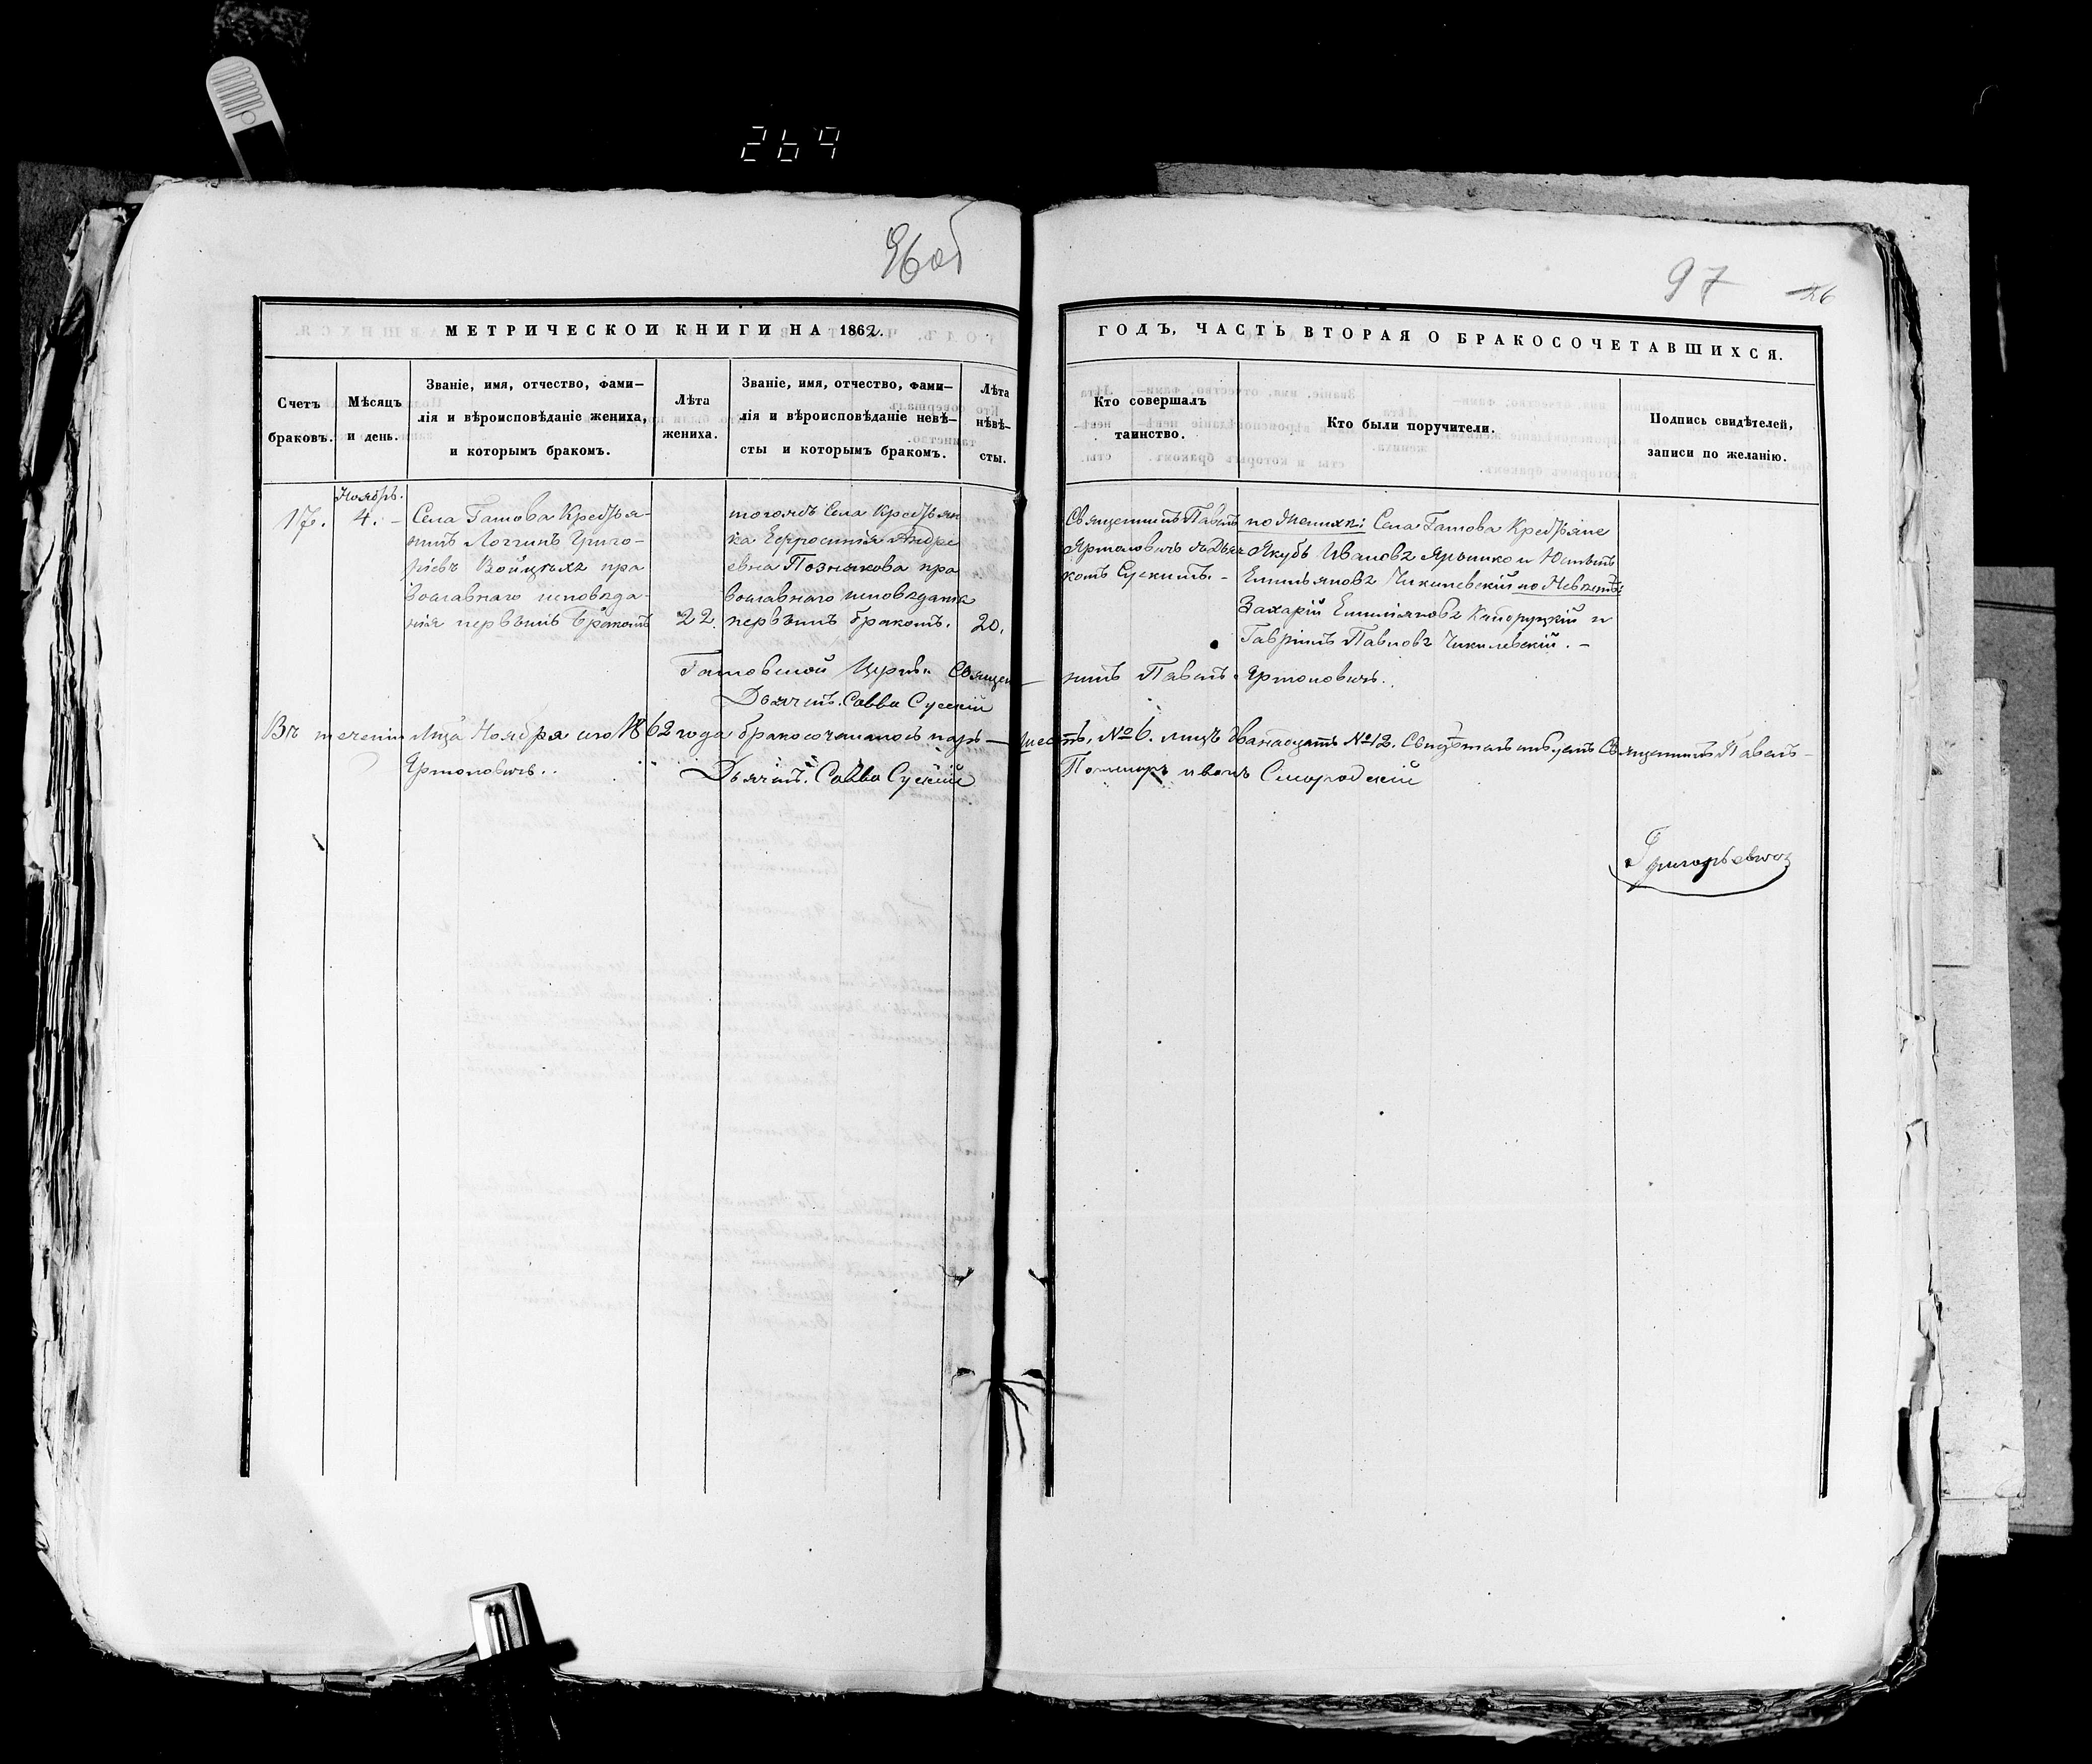 269
96об
97
26
МЕТРИЧЕСКОИ КНИГИ НА 1862.
ГОДЪ, ЧАСТЬ ВТОРАЯ О БРАКОСОЧЕТАВШИХСЯ.
Счетъ
браковъ.
Мѣсяцъ
и день.
Званіе, имя, отчество, фами–
лія и вѣроисповѣданіе жениха,
и которымъ бракомъ.
Лѣта
жениха.
Званіе, имя, отчество, фами–
лія и вѣроисповѣданіе невѣ–
сты и которымъ бракомъ.
Лѣта
нѣвѣ–
сты.
Кто совершалъ
таинство.
Кто были поручители.
Подпись свидѣтелей,
записи по желанію.
17.
Ноябрь.
4. –
Села Гатова Крестья–
нинъ Логгинъ Григо–
ріевъ Войцехъ пра
вославнаго исповѣда–
нія первымъ бракомъ
22.
тогожъ Села Крестьян
ка Ефросинія Андре
евна Познякова пра
вославнаго исповѣданія
первымъ бракомъ.
20.
Священникъ Павелъ
Ярмоловичъ съ Дьяч
комъ Сускимъ. –
по Женихѣ: Села Гатова Крестьяне
Якубъ Ивановъ Ярошко и
Емильяновъ Чикилевскій по Невестѣ:
Захарій Емиліяновъ и
Гавріилъ Павловъ Чикилевскій. –
Гатовской Церкви Священ–
никъ Павелъ Ярмоловичъ.
Дьячекъ Савва Сускій
Въ теченіи М–ца Ноября сего 1862 года бракосочеталось паръ – шесть, № 6. лицъ двѣнадцать № 12. Священникъ Павелъ –
Ярмоловичъ..
Дьячекъ. Савва Сускій
Пономарь Смородскій